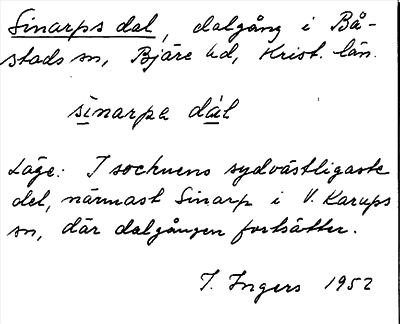 Sinarps dal, dalgång i Bå-
stads sn, Bjäre hd, Krist. län.
sinarpa dal
Läge: I socknens sydvästligaste
del, närmast Sinarp i V. Karups
sn, där dalgången fortsätter.
I. Ingers 1952